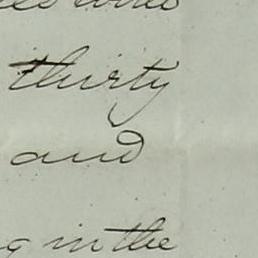 thirty
and
g in the